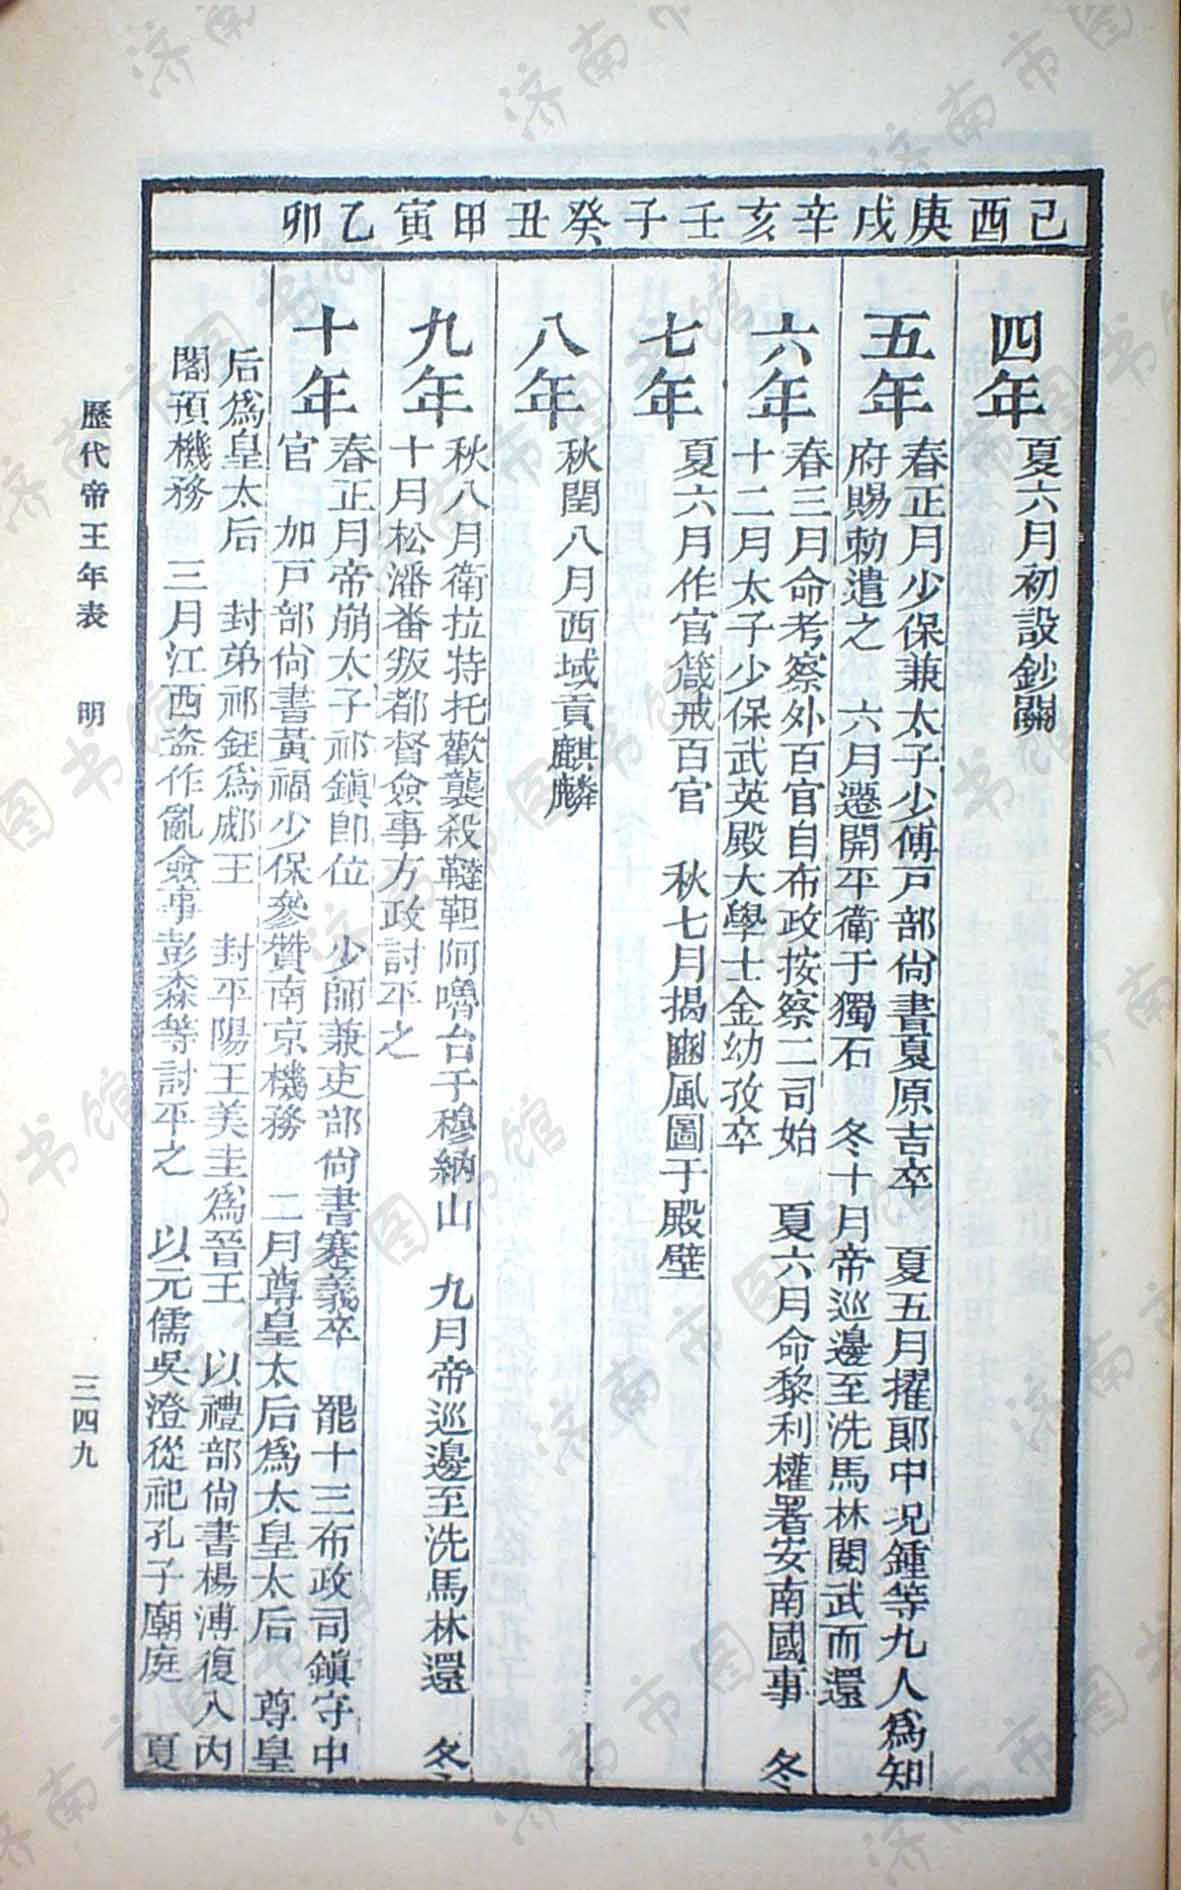 己酉庚戌辛亥壬子癸丑甲寅乙卯
四年
夏六月初設鈔關
五年
春正月少保兼太子少傅戸部尙書夏原吉卒　夏五月擢郞中况鍾等九人爲知
府賜勅遣之　六月遷開平衛于獨石　冬十月帝巡邊至洗馬林閱武而還
六年
春三月命考察外百官自布政按察二司始　夏六月命黎利權署安南國事　冬
十二月太子少保武英殿大學士金幼孜卒
七年
夏六月作官箴戒百官　秋七月揭豳風圖于殿壁
八年
秋閏八月西域貢麒麟
九年
秋八月衛拉特托歡襲殺韃靼阿嚕台于穆納山　九月帝巡邊至洗馬林還　冬
十月松潘番叛都督僉事方政討平之
十年
春正月帝崩太子祁鎭卽位　少師兼吏部尙書蹇義卒　罷十三布政司鎭守中
官　加戸部尙書黃福少保參贊南京機務　二月尊皇太后爲太皇太后　尊皇
后爲皇太后　封弟祁鈺爲郕王　封平陽王美圭爲晉王　以禮部尙書楊溥復入內
閣預機務　三月江西盜作亂僉事彭森等討平之　以元儒吳澄從祀孔子廟庭　夏
歷代帝王年表　明
三四九
济南市图书馆